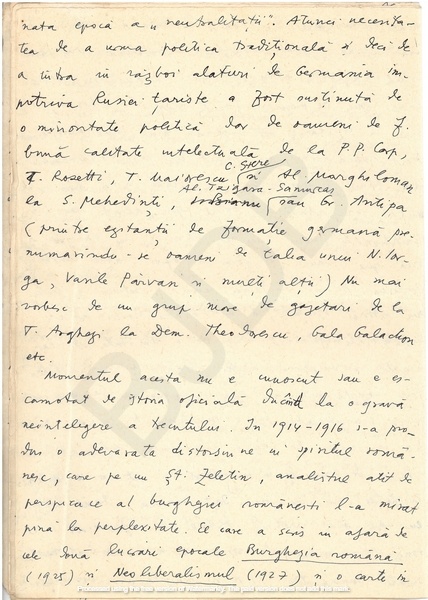 nata epoca a „neutralității". Atunci necesita-
tea de a urma politica tradițională și deci de
a intra in război alaturi de Germania im-
potriva Rusiei țariste a fost susținută de
o minoritate politică dar de oameni de f.
bună calitate intelectuală de la P.P. Carp,
C. Stere
T. Rosetti, T. Maiorescu și Al. Marghiloman
Al. Tzigara-Samurcaș
la S. Mehedinți, sau Gr. Antipa
(printre ezitanții de formație germană
numarindu-se oameni de talia unui N. Ior-
ga, Vasile Pârvan si mulți alții) Nu mai
vorbesc de un grup mare de gazetari de la
T. Arghezi la Dem. Theodorescu, Gala Galaction
etc.
Momentul acesta nu e cunoscut sau e es-
camotat de istoria oficială încât la o gravă
neințelegere a trecutului. In 1914-1916 s-a pro-
dus o adevarata distorsiune in spiritul româ-
nesc, care pe un Șt. Zeletin, analistul atît de
perspicace al burgheziei românești l-a mirat
pînă la perplexitate. El care a scris in afară de
cele două lucrari epocale Burghezia română
(1925) si Neoliberalismul (1927) si o carte in
BJDB